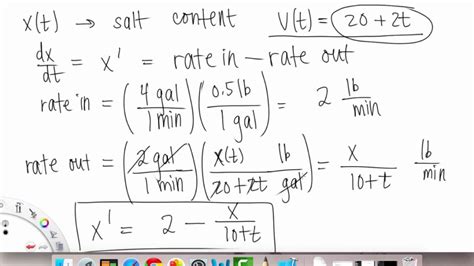 x(t) → salt content V(t) = 20 + 2t
dx/dt = x' = rate in − rate out
rate in = (4 gal / 1 min) (0.5 lb / 1 gal) = 2 lb/min
rate out = (2 gal / 1 min) (x(t) lb / 20+2t gal) = x / 10+t lb/min
x' = 2 − x / 10+t